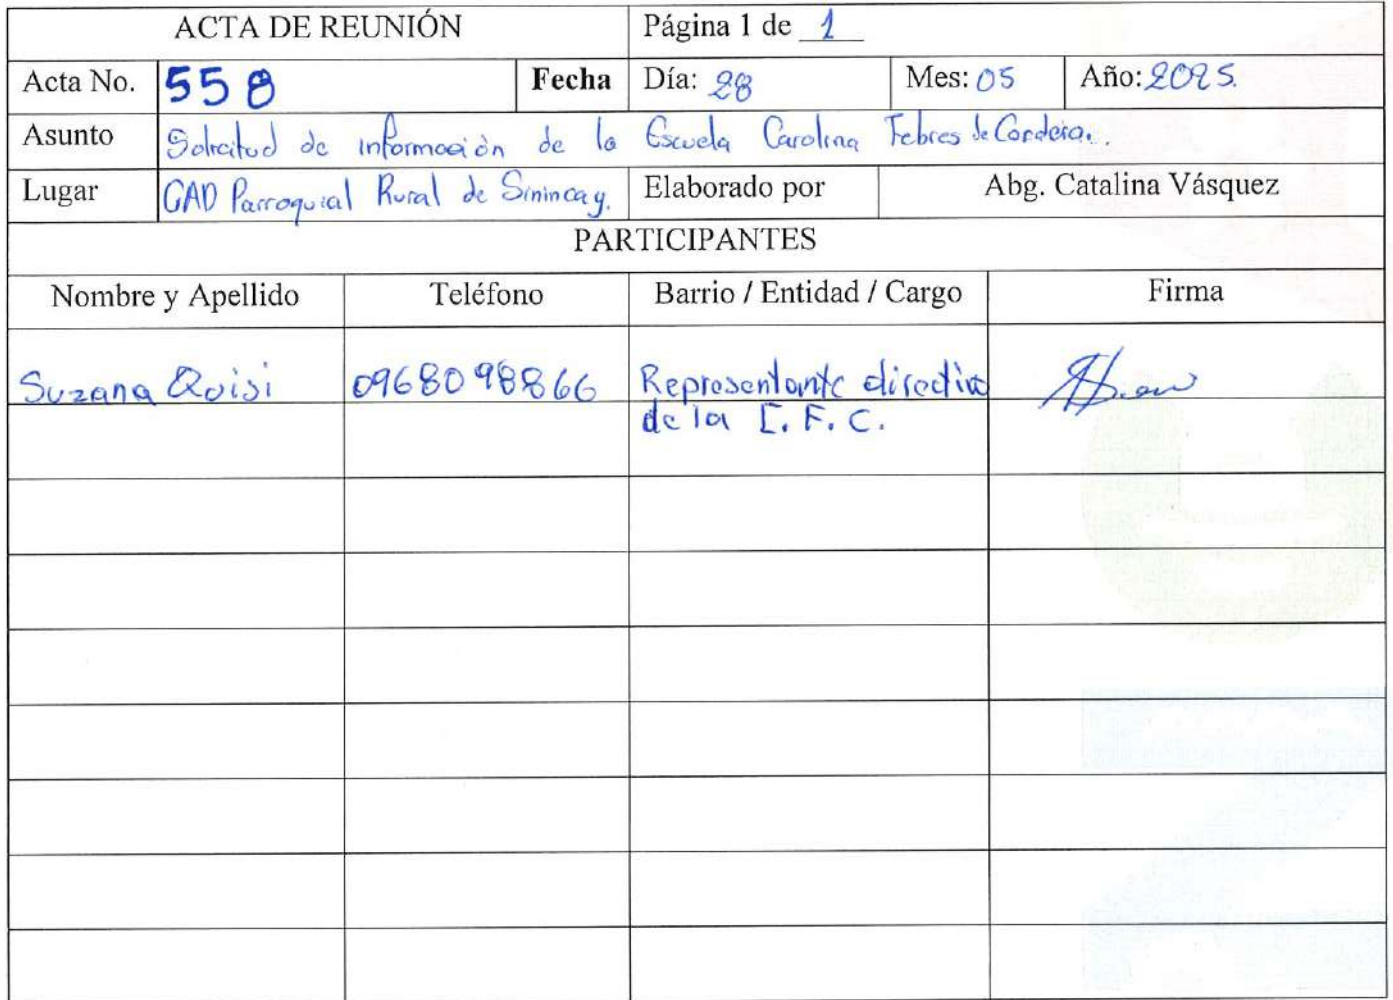 ACTA DE REUNIÓN Página 1 de 1
Acta No. 558 Fecha Día: 28 Mes: 05 Año: 2025.
Asunto Solicitud de información de la Escuela Carolina Febres de Cordero.
Lugar GAD Parroquial Rural de Sinincay. Elaborado por Abg. Catalina Vásquez
PARTICIPANTES
Nombre y Apellido Teléfono Barrio / Entidad / Cargo Firma
Suzana Quisi 0968098866 Representante directiva
de la E. F. C.